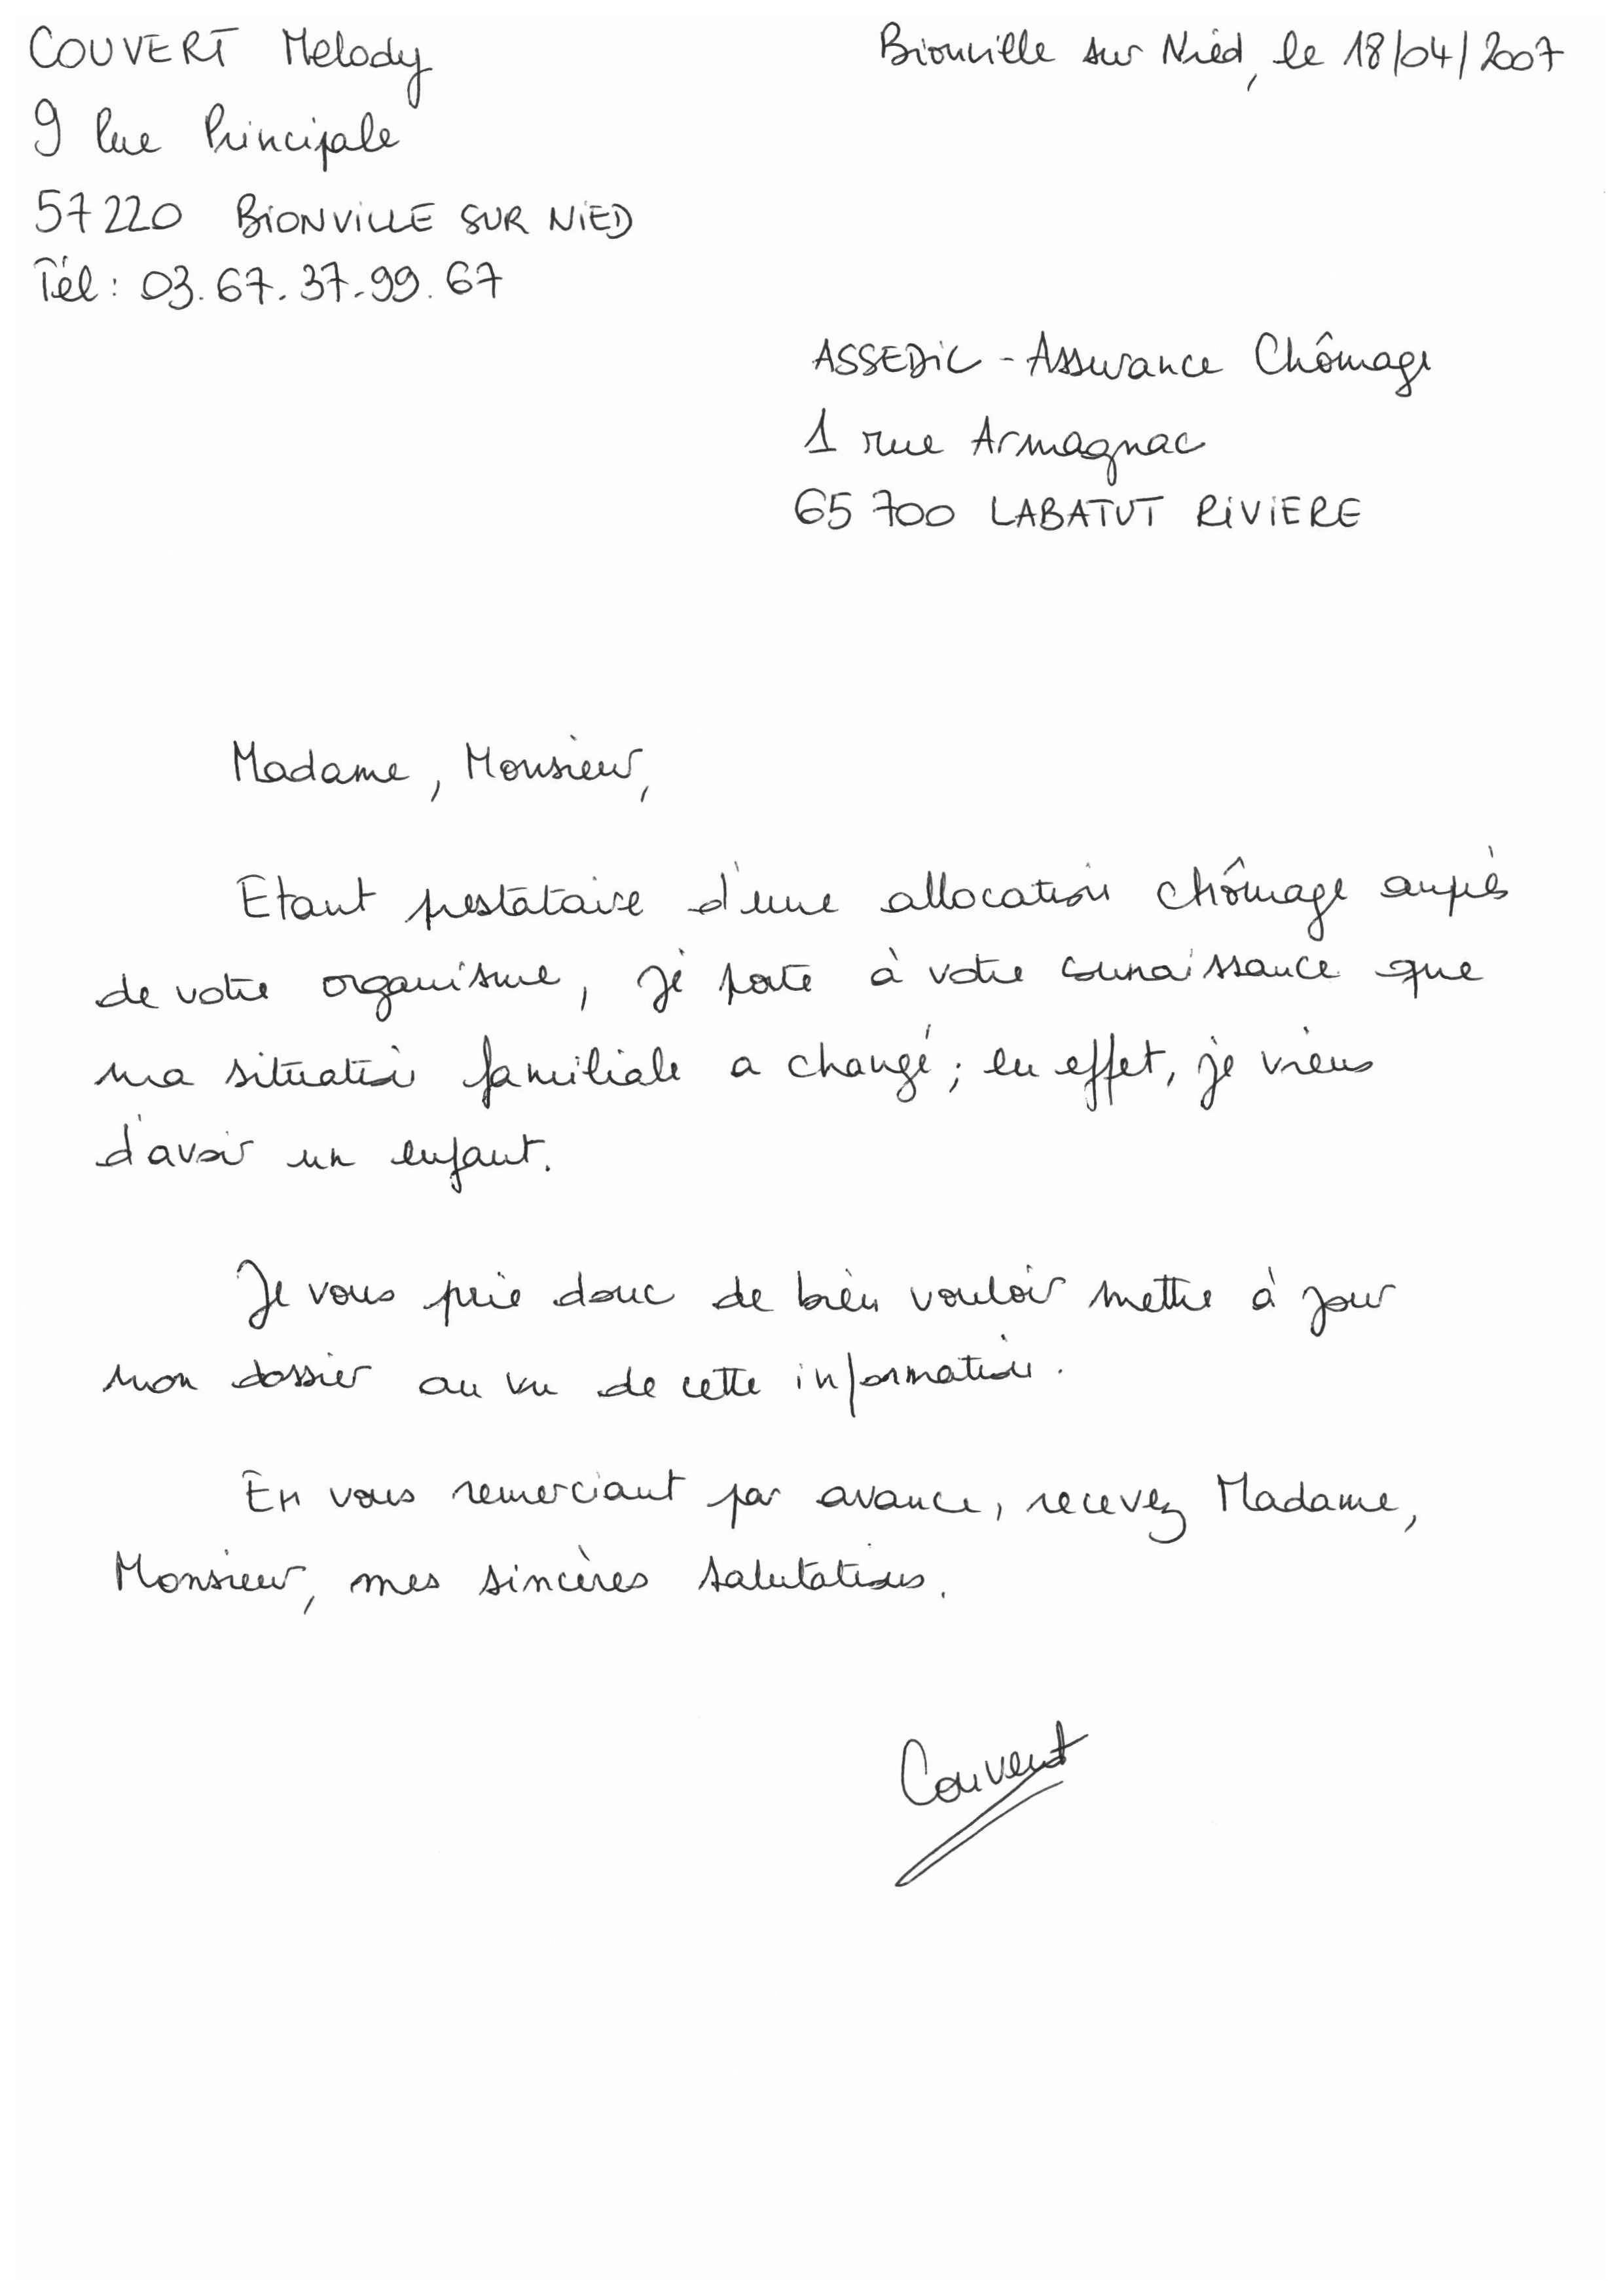 COUVERT Melody
Bionville sur Nied, le 18/04/2007
9 Rue Principale
57220 BIONVILLE SUR NIED
Tél : 03.67.37.99.67
ASSEDIC - Assurance Chômage
1 rue Armagnac
65700 LABATUT RIVIERE
Madame, Monsieur,
Etant prestataire d'une allocation chômage auprès
de votre organisme, je porte à votre connaissance que
ma situation familiale a changé ; en effet, je viens
d'avoir un enfant.
Je vous prie donc de bien vouloir mettre à jour
mon dossier au vu de cette information.
En vous remerciant par avance, recevez Madame,
Monsieur, mes sincères salutations.
Couvert